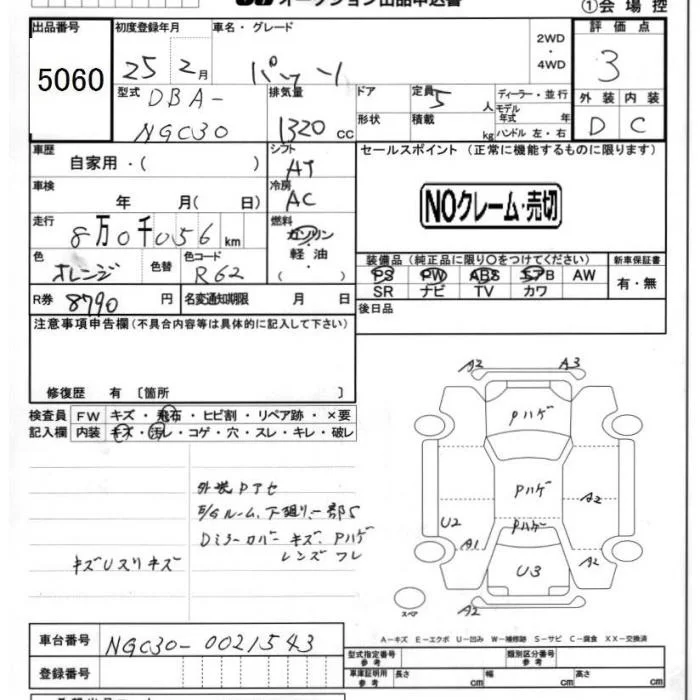 オークション出品申込書
①会場控
出品番号 初度登録年月 車名・グレード 2WD・4WD 評価点
5060 25 2月 パッソ 3
型式 DBA-NGC30 排気量 1320 cc ドア 定員 5人 ディーラー・並行
形状 積載 kg モデル年式 年 ハンドル 左・右
外装 内装
D C
車歴 シフト セールスポイント (正常に機能するものに限ります)
自家用・( ) AT
車検 年 月( 日) 冷房 AC
NOクレーム・売切
走行 8万0千056 km 燃料 ガソリン・軽油・( )
色 オレンジ 色替 色コード R62
装備品(純正品に限り○をつけてください) 新車保証書
PS PW ABS エアB AW 有・無
SR ナビ TV カワ
R券 8790 円 名変通知期限 月 日 後日品
注意事項申告欄(不具合内容等は具体的に記入して下さい)
修復歴 有 〔箇所 〕
検査員 FW キズ・飛石・ヒビ割・リペア跡・×要
記入欄 内装 キズ・汚レ・コゲ・穴・スレ・キレ・破レ
外装Pアセ
E/Gルーム、下廻り、一部S
Dミラーカバー キズ、Pハゲ
レンズ フレ
キズUスリキズ
A2 A3
Pハゲ
Pハゲ A2
Pハゲ
U2 A1 A2
U3
スペア A2
A-キズ E-エクボ U-凹み W-補修跡 S-サビ C-腐食 XX-交換済
車台番号 NGC30-0021543
型式指定番号 参考 類別区分番号 参考
登録番号 車庫証明用 参考 長さ cm 幅 cm 高さ cm